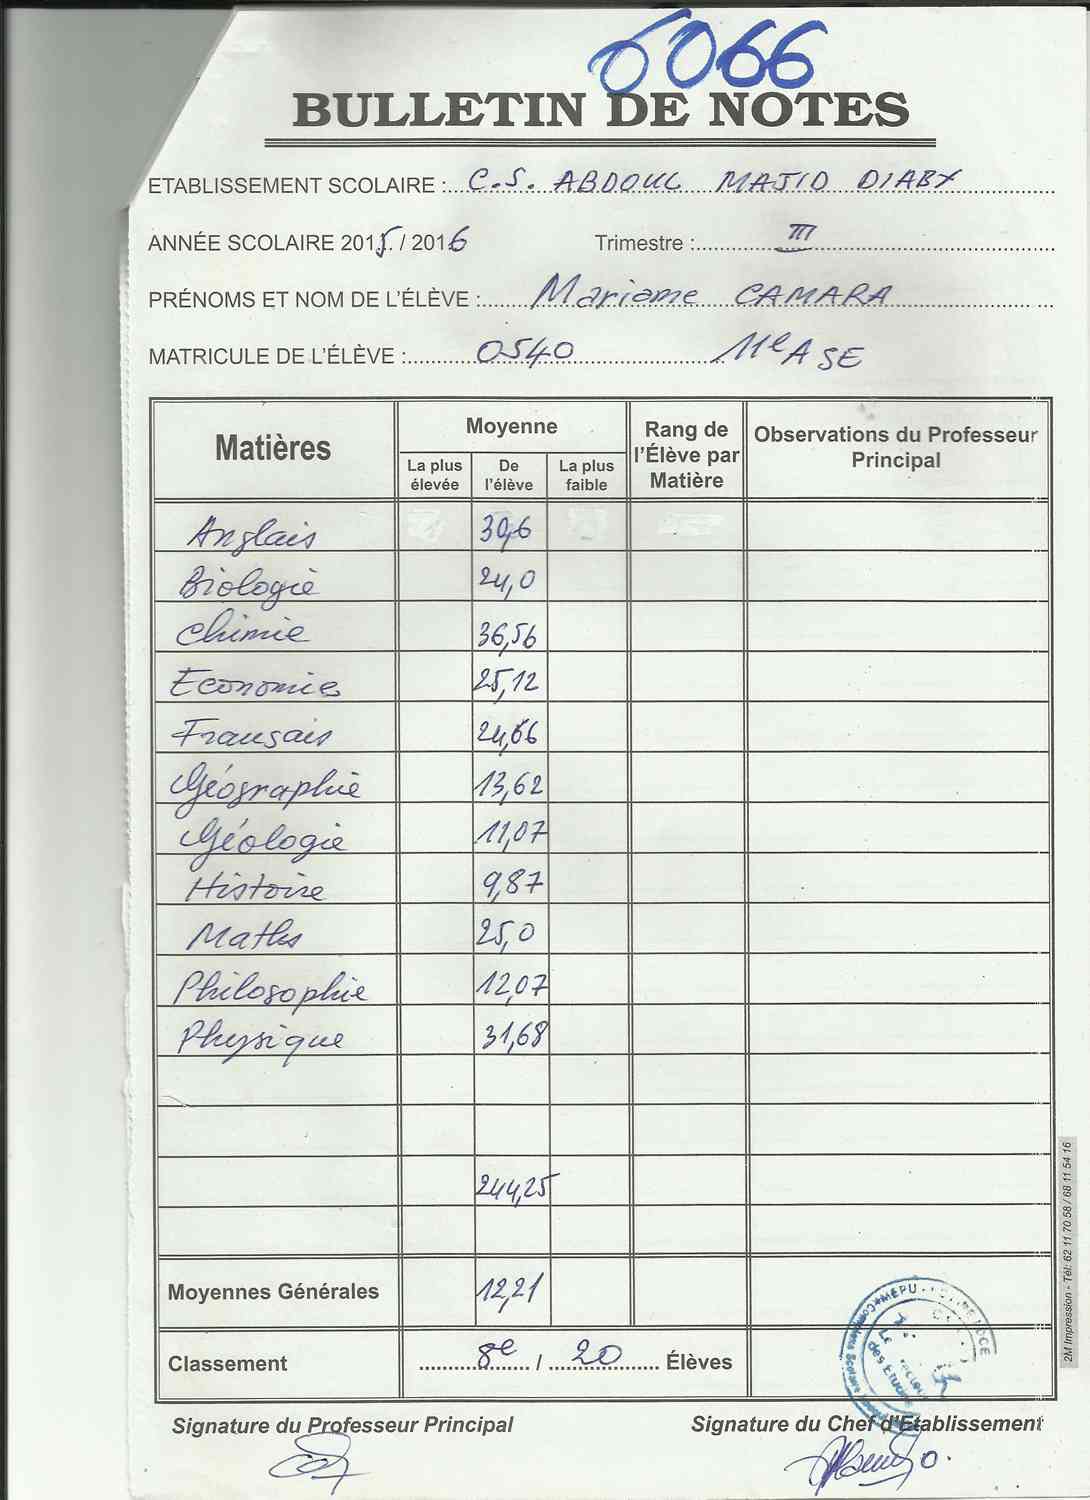 6066
BULLETIN DE NOTES
ETABLISSEMENT SCOLAIRE : C.S. ABDOUL MAJID DIABY
ANNÉE SCOLAIRE 2015 / 2016 Trimestre : III
PRÉNOMS ET NOM DE L'ÉLÈVE : Mariame CAMARA
MATRICULE DE L'ÉLÈVE : 0540 11e A SE
Matières Moyenne Rang de l'Élève par Matière Observations du Professeur Principal
La plus élevée De l'élève La plus faible
Anglais 30,6
Biologie 24,0
Chimie 36,56
Economies 25,12
Français 24,66
Géographie 13,62
Géologie 11,07
Histoire 9,87
Maths 25,0
Philosophie 12,07
Physique 31,68
244,25
Moyennes Générales 12,21
Classement 8e / 20 Élèves
Signature du Professeur Principal Signature du Chef d'Etablissement
2M Impression - Tél: 62 11 70 58 / 68 11 54 16
MEPU
des Etudes